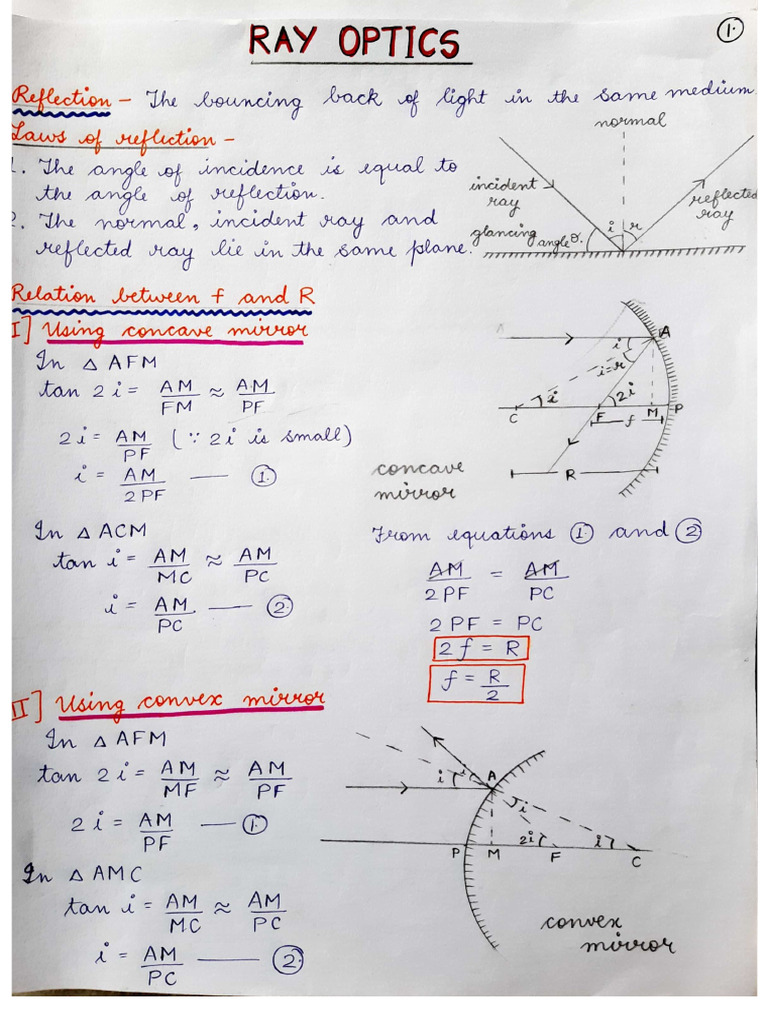 RAY OPTICS
1.
Reflection – The bouncing back of light in the same medium.
Laws of reflection –
1. The angle of incidence is equal to
the angle of reflection.
2. The normal, incident ray and
reflected ray lie in the same plane.
normal
incident
ray
reflected
ray
glancing
angle
i r
Relation between f and R
I] Using concave mirror
In △ AFM
tan 2i = AM/FM ≈ AM/PF
2i = AM/PF (∵ 2i is small)
i = AM/2PF — ①
In △ ACM
tan i = AM/MC ≈ AM/PC
i = AM/PC — ②
A
i
i=r
i 2i
C F M P
f
R
concave
mirror
From equations ① and ②
AM/2PF = AM/PC
2PF = PC
2f = R
f = R/2
II] Using convex mirror
In △ AFM
tan 2i = AM/MF ≈ AM/PF
2i = AM/PF — ①
In △ AMC
tan i = AM/MC ≈ AM/PC
i = AM/PC — ②
A
i i
i
2i i
P M F C
convex
mirror